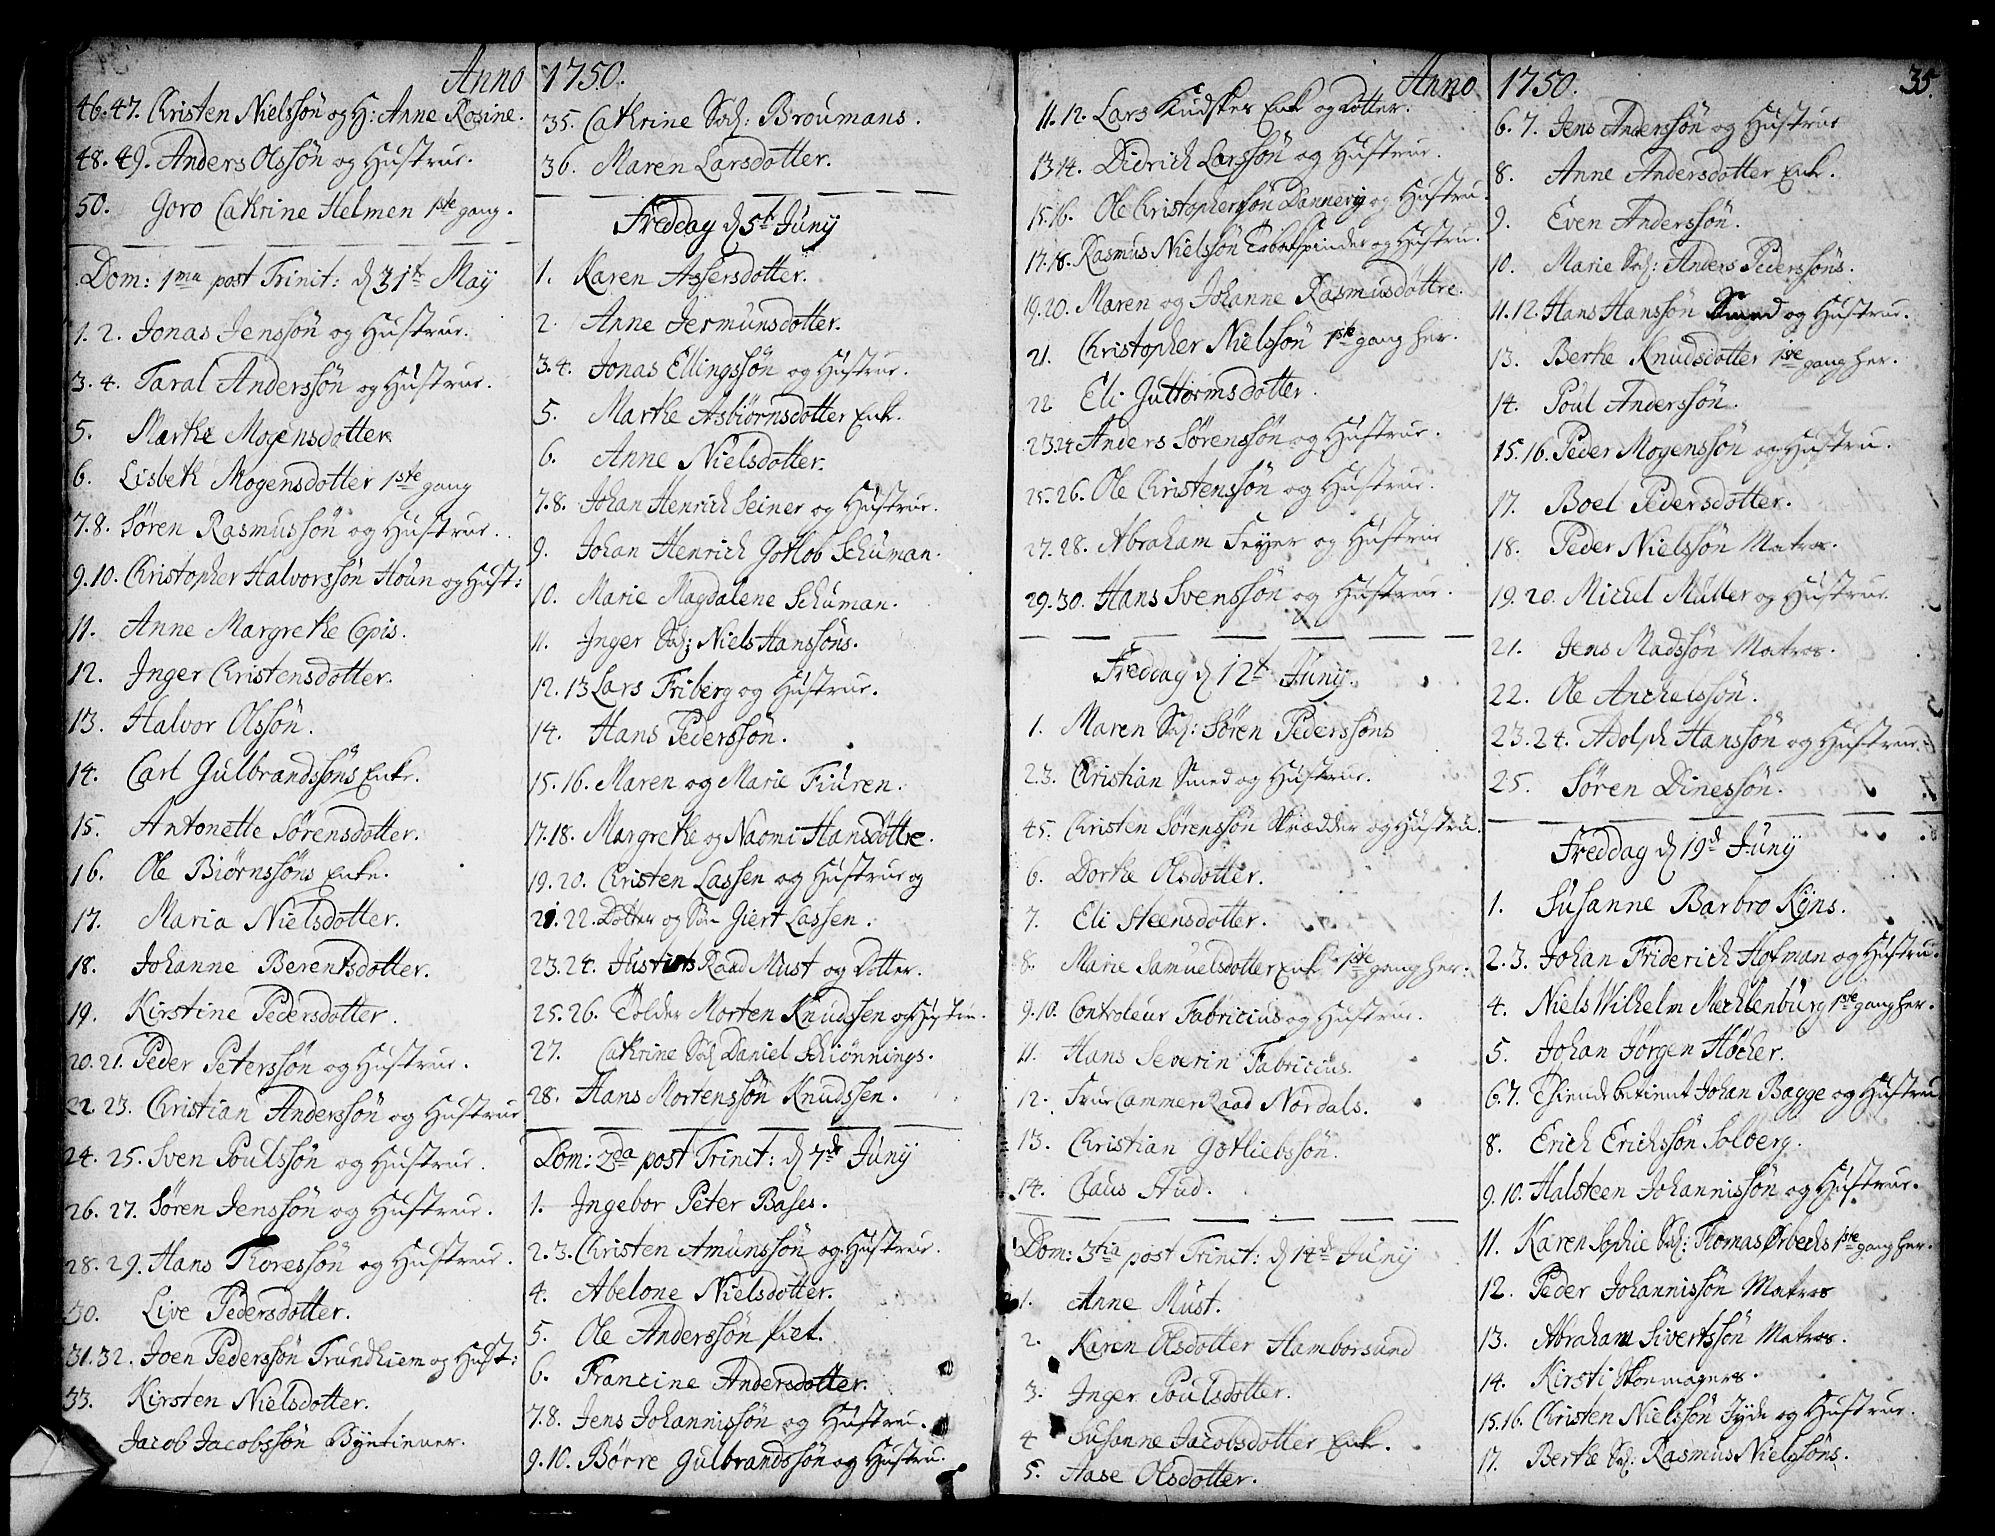 Anno 1750.
46.47. Christen Nielssøn og H: Anne Rosine.
48.49. Anders Olssøn og Hustrue.
50. Goro Cathrine Helmen 1ste gang.
Dom: 1ma post Trinit: d 31te May
1. 2. Jonas Jenssøn og Hustrue.
3. 4. Taral Anderssøn og Hustrue.
5. Marthe Mogensdotter
6. Lisbeth Mogensdotter 1ste gang
7.8. Søren Rasmussøn og Hustrue.
9.10. Christopher Halvorssøn Houn og Hust:
11. Anne Margrethe Opis.
12. Inger Christensdotter.
13. Halvor Olssøn.
14. Carl Gulbrandssøns Enke.
15. Antonette Sørensdotter.
16. Ole Biørnssøns Enke.
17. Maria Nielsdotter.
18. Johanne Berentsdotter.
19. Kirstine Pedersdotter.
20.21. Peder Peterssøn og Hustrue.
22.23. Christian Anderssøn og Hustrue
24. 25. Sven Poulssøn og Hustrue.
26. 27. Søren Jenssøn og Hustrue.
28. 29. Hans Thoressøn og Hustrue.
30. Live Pedersdotter.
31.32. Joen Pederssøn Trundhiem og Hust:
33. Kirsten Nielsdotter.
Jacob Jacobssøn Byetiener.
35. Cathrine Sal: Broumans.
36. Maren Larsdotter.
Freddag d 5t Juny
1. Karen Assersdotter.
2. Anne Jermunsdotter.
3.4. Jonas Ellingssøn og Hustrue.
5. Marthe Asbiørnsdotter Enke.
6. Anne Nielsdotter.
7.8. Johan Henrich Seiner og Hustrue.
9. Johan Henrich Gotlob Schuman.
10. Marie Magdalene Schuman.
11. Inger Sal: Niels Hanssøns.
12. 13 Lars Friberg og Hustrue.
14. Hans Pederssøn.
15.16. Maren og Marie Fiuren.
17.18. Margrethe og Naomi Hansdøttre.
19. 20. Christen Lassen og Hustrue og
21. 22. Dotter og Søn Giert Lassen.
23.24. Justits Raad Must og Dotter.
25.26. Tolder Morten Knudssen og Hustrue.
27. Cathrine Sal Daniel Schiønnings.
28. Hans Mortenssøn Knudssen.
Dom: 2da post Trinit: d 7de Juny
1. Ingebor Peter Bases.
2.3. Christen Amunssøn og Hustrue.
4. Abelone Nielsdotter.
5. Ole Anderssøn Piet.
6. Francine Andersdotter.
7.8. Jens Johannissøn og Hustrue.
9.10. Børre Gulbrandssøn og Hustru.
Anno 1750. 35.
11. 12. Lars Kudskes Enke og Dotter.
13.14. Didrich Larssøn og Hustrue.
15.16. Ole Christopherssøn Dannevig og Hustru.
17.18. Rasmus Nielssøn Tobakspinder og Hustru.
19.20. Maren og Johanne Rasmusdøttre.
21. Christopher Nielssøn 1ste gang her.
22 Eli Guttormsdotter.
23.24 Anders Sørenssøn og Hustrue.
25.26. Ole Christenssøn og Hustrue.
27.28. Abraham Feyer og Hustrue
29.30. Hans Svenssøn og Hustrue.
Freddag d 12t Juny.
1. Maren Sal: Søren Pederssøns
2.3. Christian Smed og Hustrue.
45. Christen Sørenssøn Skrædder og Hustru.
6. Dorthe Olsdotter.
7. Eli Steensdotter.
8. Marie Samuelsdotter Enke 1ste gang her.
9.10. Controleur Fabricius og Hustrue.
11. Hans Severin Fabricius.
12. Frue Cammer Raad Nordals.
13. Christian Gotliebssøn.
14. Claus Aud.
Dom: 3tia post Trinit: d 14de Juny
1. Anne Must.
2. Karen Olsdotter Hamborsund
3. Inger Poulsdotter.
4 Susanne Jacobsdotter Enke.
5. Aase Olsdotter.
6. 7. Jens Anderssøn og Hustrue
8. Anne Andersdotter Enke.
9. Even Anderssøn.
10. Marie Sal: Anders Pederssøns.
11.12. Hans Hanssøn Smed og Hustrue.
13. Berthe Knudsdotter 1ste gang her.
14. Poul Anderssøn.
15.16. Peder Mogenssøn og Hustru.
17. Boel Pedersdotter.
18. Peder Nielssøn Matros.
19. 20. Michel Müller og Hustrue.
21. Jens Madssøn Matros.
22. Ole Anchelssøn.
23.24. Adolph Hanssøn og Hustrue.
25. Søren Dinessøn.
Freddag d 19de Juny
1. Susanne Barbro Kyns.
2.3. Johan Friderich Hofman og Hustru.
4. Niels Wilhelm Mechlenburg 1ste gang her.
5. Johan Jørgen Høcher.
6.7. Tiendebetient Johan Bagge og Hustru
8. Erich Erichssøn Solberg.
9.10. Halsteen Johannissøn og Hustrue.
11. Karen Sophie Sal: Thomas Ørbechs 1ste gang her.
12. Peder Johannissøn Matros
13. Abraham Sivertssøn Matros.
14. Kirsti Skoemagers.
15.16. Christen Nielssøn Jyde og Hustrue.
17. Berthe Sal: Rasmus Nielssøns.